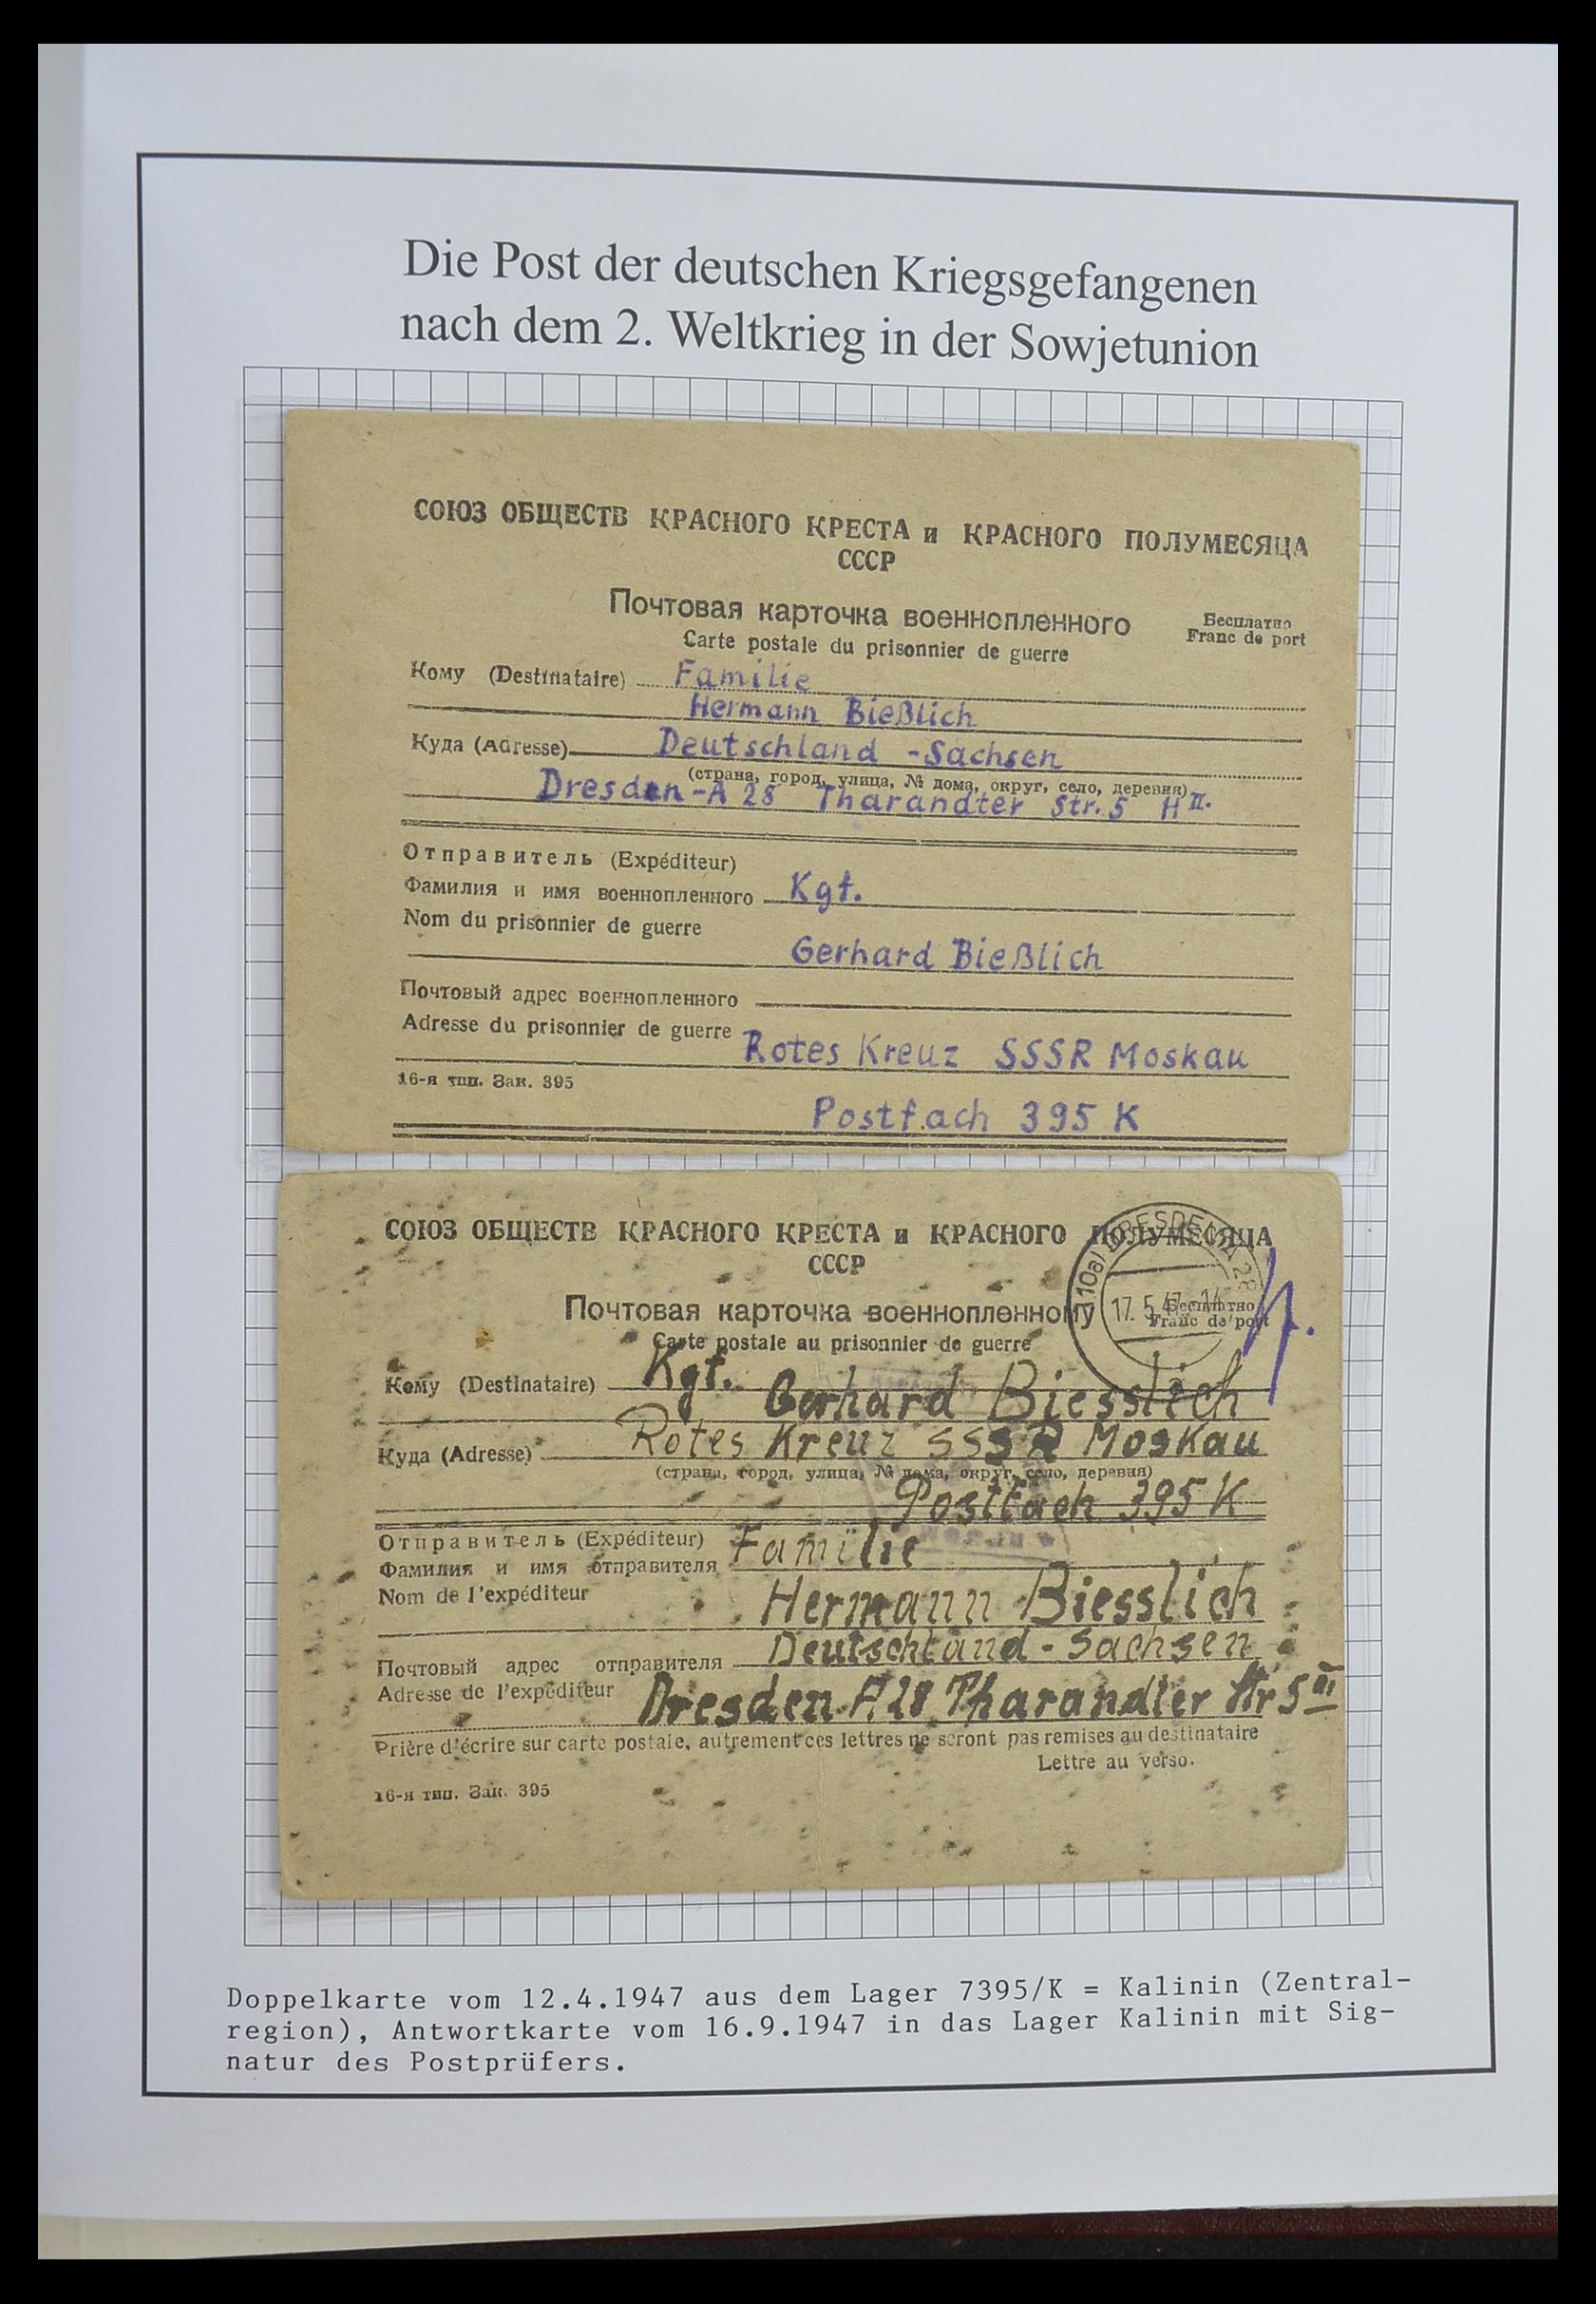 Die Post der deutschen Kriegsgefangenen
nach dem 2. Weltkrieg in der Sowjetunion
СОЮЗ ОБЩЕСТВ КРАСНОГО КРЕСТА и КРАСНОГО ПОЛУМЕСЯЦА
СССР
Почтовая карточка военнопленного
Бесплатно
Carte postale du prisonnier de guerre
Franc de port
Кому (Destinataire) Familie
Hermann Bießlich
Куда (Adresse) Deutschland - Sachsen
(страна, город, улица, № дома, округ, село, деревня)
Dresden - A 28 Tharandter Str. 5 H II.
Отправитель (Expéditeur)
Фамилия и имя военнопленного Kgf.
Nom du prisonnier de guerre
Gerhard Bießlich
Почтовый адрес военнопленного
Adresse du prisonnier de guerre Rotes Kreuz SSSR Moskau
16-я тип. Зак. 395
Postfach 395 K
СОЮЗ ОБЩЕСТВ КРАСНОГО КРЕСТА и КРАСНОГО ПОЛУМЕСЯЦА
СССР
(10a) DRESDEN A 28
17.5.47.-14
Почтовая карточка военнопленному
Бесплатно
Franc de port
Carte postale au prisonnier de guerre
Кому (Destinataire) Kgf. Gerhard Biesslich
Куда (Adresse) Rotes Kreuz SSSR Moskau
(страна, город, улица, № дома, округ, село, деревня)
Postfach 395 K
Отправитель (Expéditeur)
Фамилия и имя отправителя Familie
Nom de l'expéditeur
Hermann Biesslich
Почтовый адрес отправителя Deutschland - Sachsen
Adresse de l'expéditeur Dresden A. 28 Tharandter Str 5 III
Prière d'écrire sur carte postale, autrement ces lettres ne seront pas remises au destinataire
Lettre au verso.
16-я тип. Зак. 395
Doppelkarte vom 12.4.1947 aus dem Lager 7395/K = Kalinin (Zentral-
region), Antwortkarte vom 16.9.1947 in das Lager Kalinin mit Sig-
natur des Postprüfers.